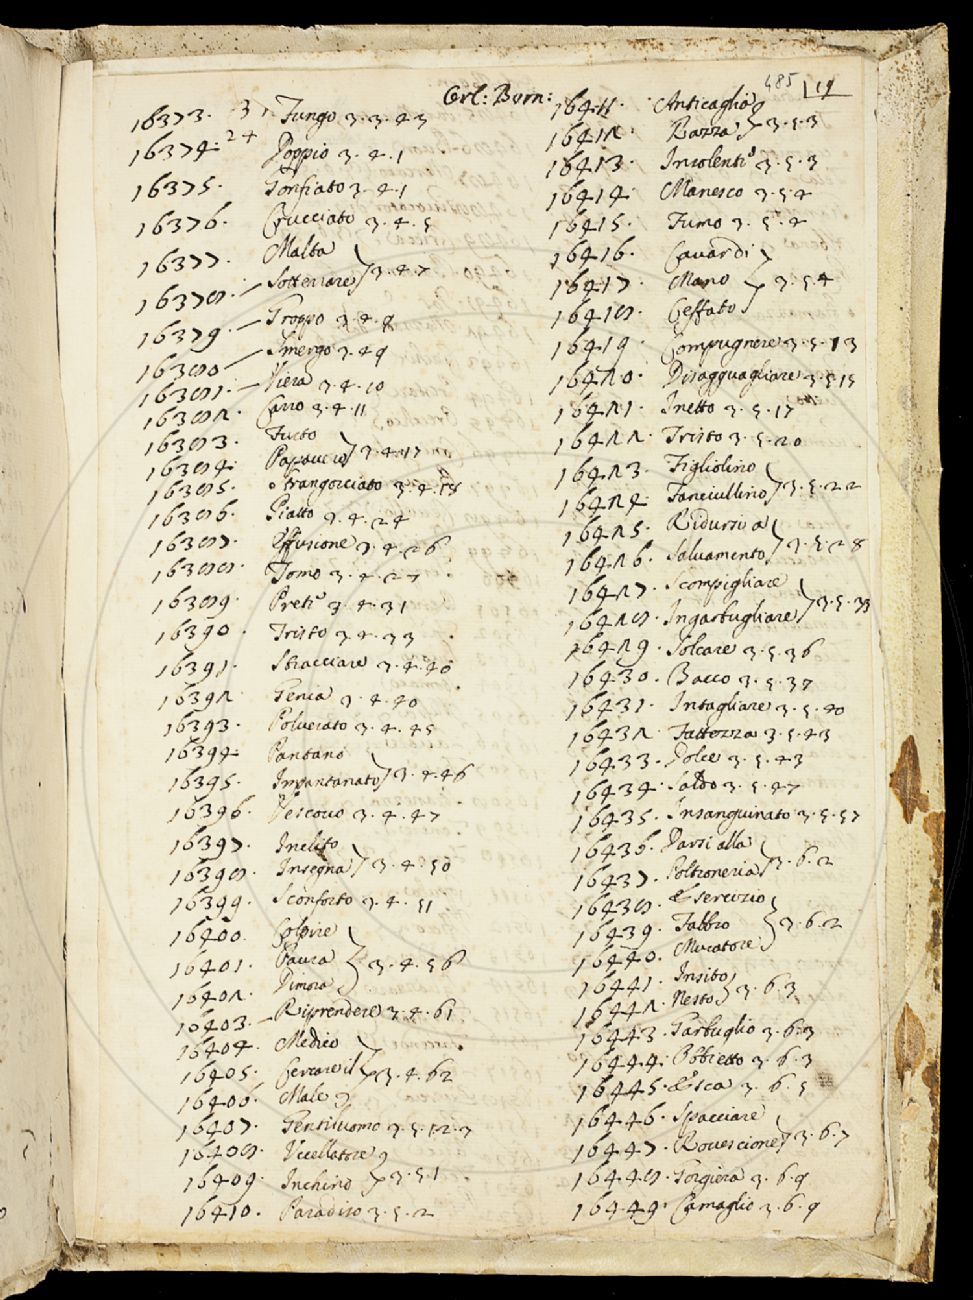 Orl: Born:
485 19
16373. 3. Fungo 3.3.43
16374. 24 Doppio 3.4.1
16375. Gonfiato 3.4.1
16376. Crucciato 3.4.5
16377. Malta
16378. Sotterrare } 3.4.7
16379. Troppo 3.4.8
16380 Smergo 3.4.9
16381. Viera 3.4.10
16382. Carro 3.4.11
16383. Tutto
16384. Papavero } 3.4.17
16385. Strangosciato 3.4.18
16386. Piatto 3.4.24
16387. Effusione 3.4.26
16388. Tomo 3.4.27
16389. Preti 3.4.31
16390. Tristo 3.4.33
16391. Stracciare 3.4.40
16392. Genca 3.4.40
16393. Polverato 3.4.45
16394. Pantano
16395. Impantanato } 3.4.46
16396. Vescovo 3.4.47
16397. Inclito
16398. Insegna } 3.4.50
16399. Sconforto 3.4.51
16400. Colpire
16401. Paura } 3.4.56
16402. Dimora
16403. Riprendere 3.4.61
16404. Medico
16405. Cercare il } 3.4.62
16406. Male
16407. Gentiluomo 3.5.1.2.3
16408. Uccellatore
16409. Inchino } 3.5.1
16410. Paradiso 3.5.2
16411. Anticaglia
16412. Razza } 3.5.3
16413. Insolenti 3.5.3
16414. Manesco 3.5.4
16415. Fumo 3.5.4
16416. Cavar di
16417. Mano } 3.5.4
16418. Ceffato
16419. Compugnere 3.5.13
16420. Disagguagliare 3.5.15
16421. Inetto 3.5.17
16422. Tristo 3.5.20
16423. Figliolino
16424. Fanciullino } 3.5.22
16425. Ridursi a
16426. Salvamento } 3.5.28
16427. Scompigliare
16428. Ingarbugliare } 3.5.33
16429. Solcare 3.5.36
16430. Bacco 3.5.37
16431. Intagliare 3.5.40
16432. Fattezza 3.5.43
16433. Dolce 3.5.43
16434. Saldo 3.5.47
16435. Insanguinato 3.5.57
16436. Darsi alla
16437. Poltroneria } 3.6.2
16438. Esercizio
16439. Fabbro } 3.6.2
16440. Muratore
16441. Insito
16442. Nesto } 3.6.3
16443. Garbuglio 3.6.3
16444. Obbietto 3.6.3
16445. Esca 3.6.5
16446. Spacciare
16447. Rovescione } 3.6.7
16448. Sorgiera 3.6.9
16449. Camaglio 3.6.9